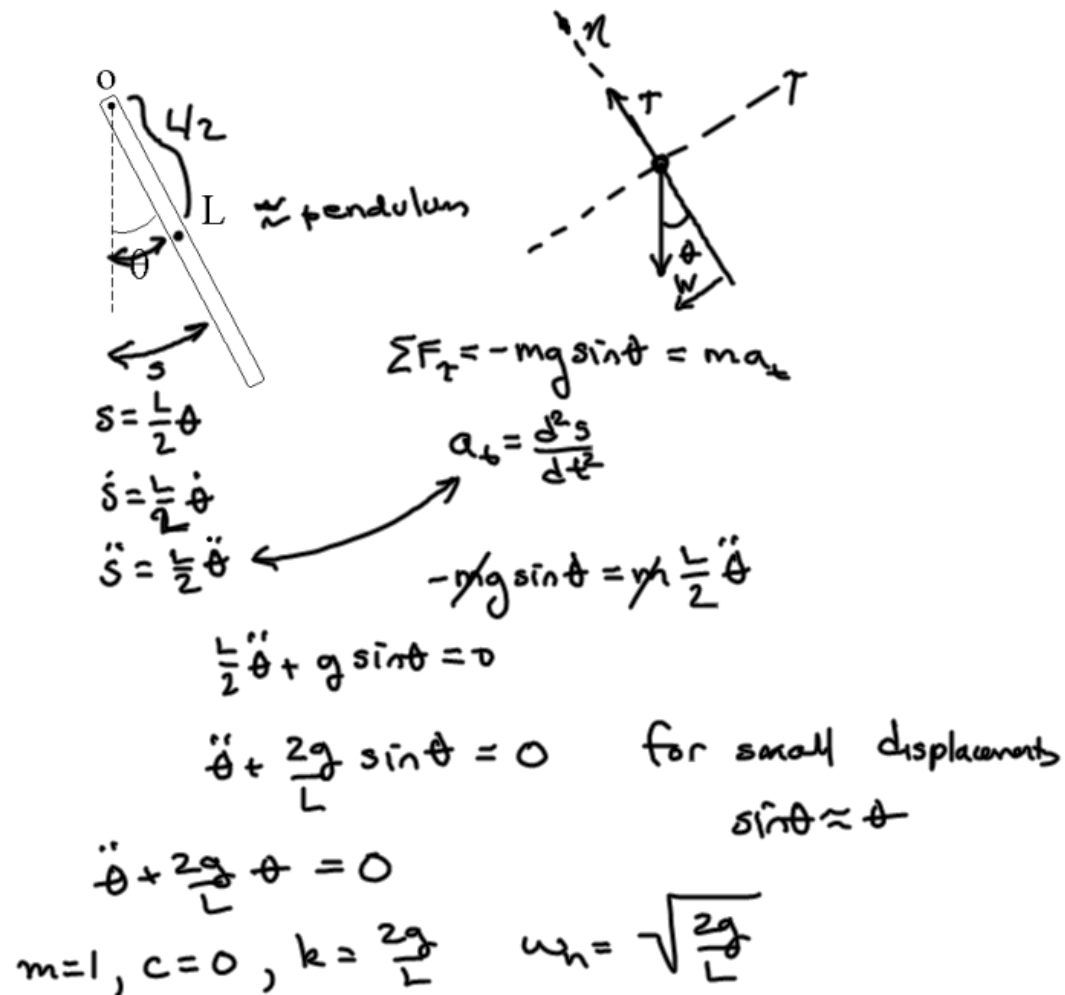 O
L/2
L
≈ pendulum
θ
s
n
T
T
θ
W
ΣF_T = -mg sinθ = ma_t
s = L/2 θ
a_t = d²s/dt²
ṡ = L/2 θ̇
s̈ = L/2 θ̈
-mg sinθ = m L/2 θ̈
L/2 θ̈ + g sinθ = 0
θ̈ + 2g/L sinθ = 0 for small displacements
sinθ ≈ θ
θ̈ + 2g/L θ = 0
m=1, c=0, k = 2g/L ωn = √(2g/L)